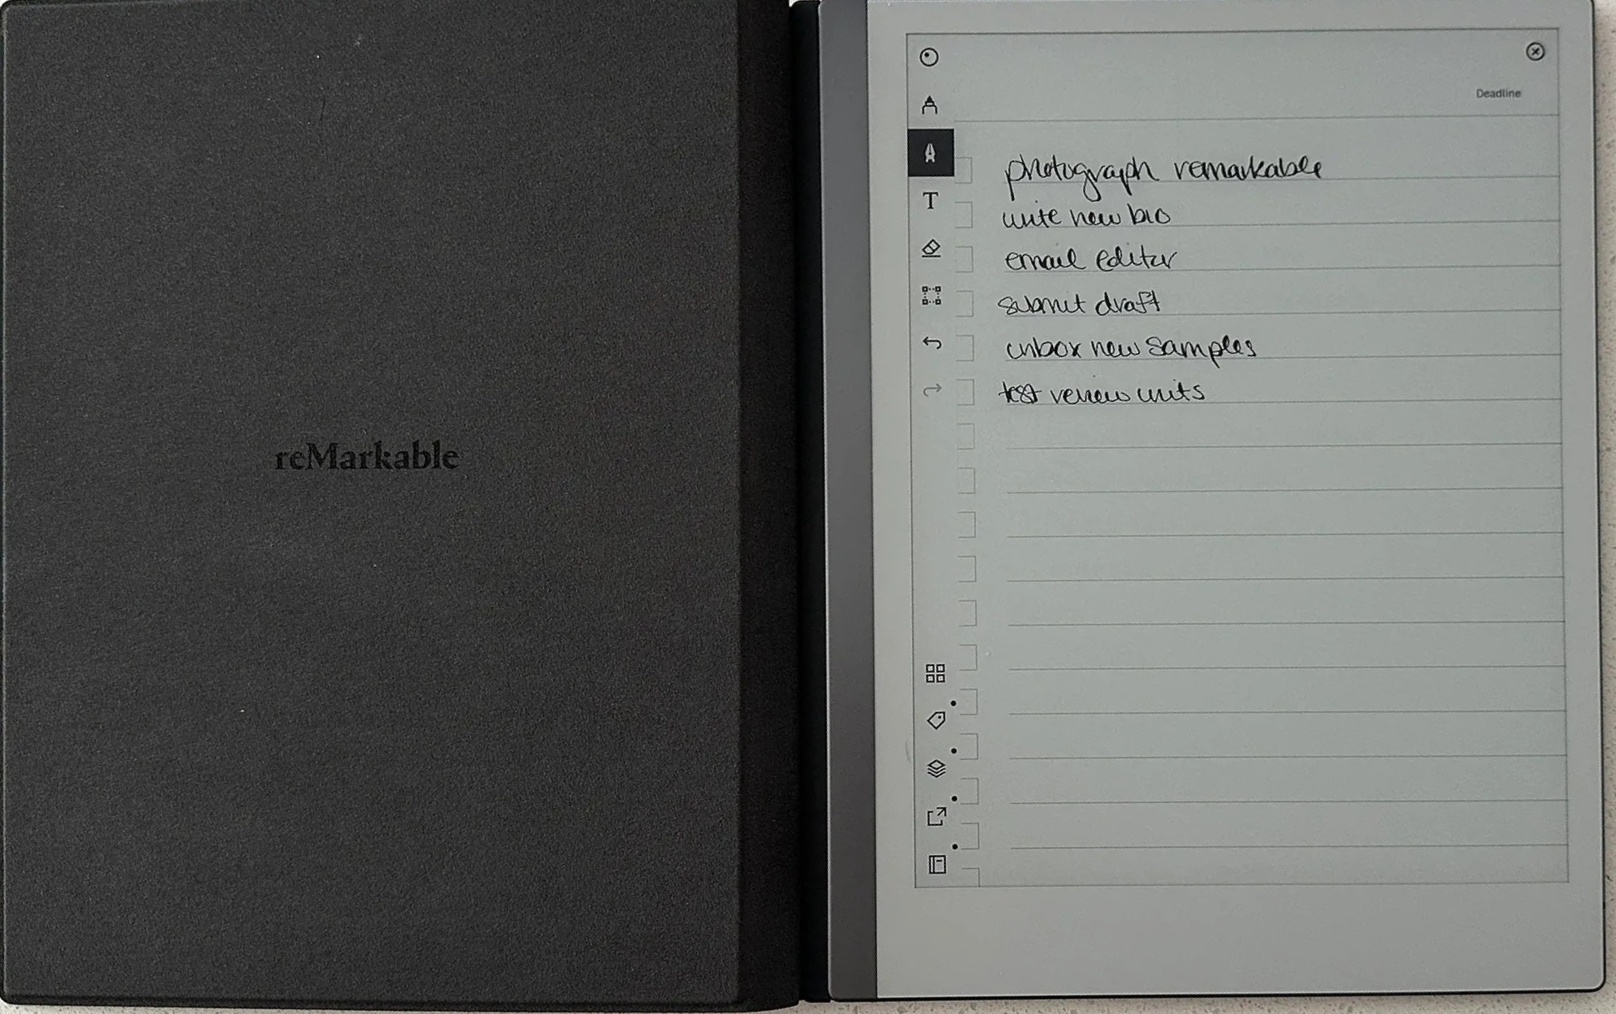 reMarkable
Deadline
photograph remarkable
write new bio
email editor
submit draft
unbox new samples
test review units